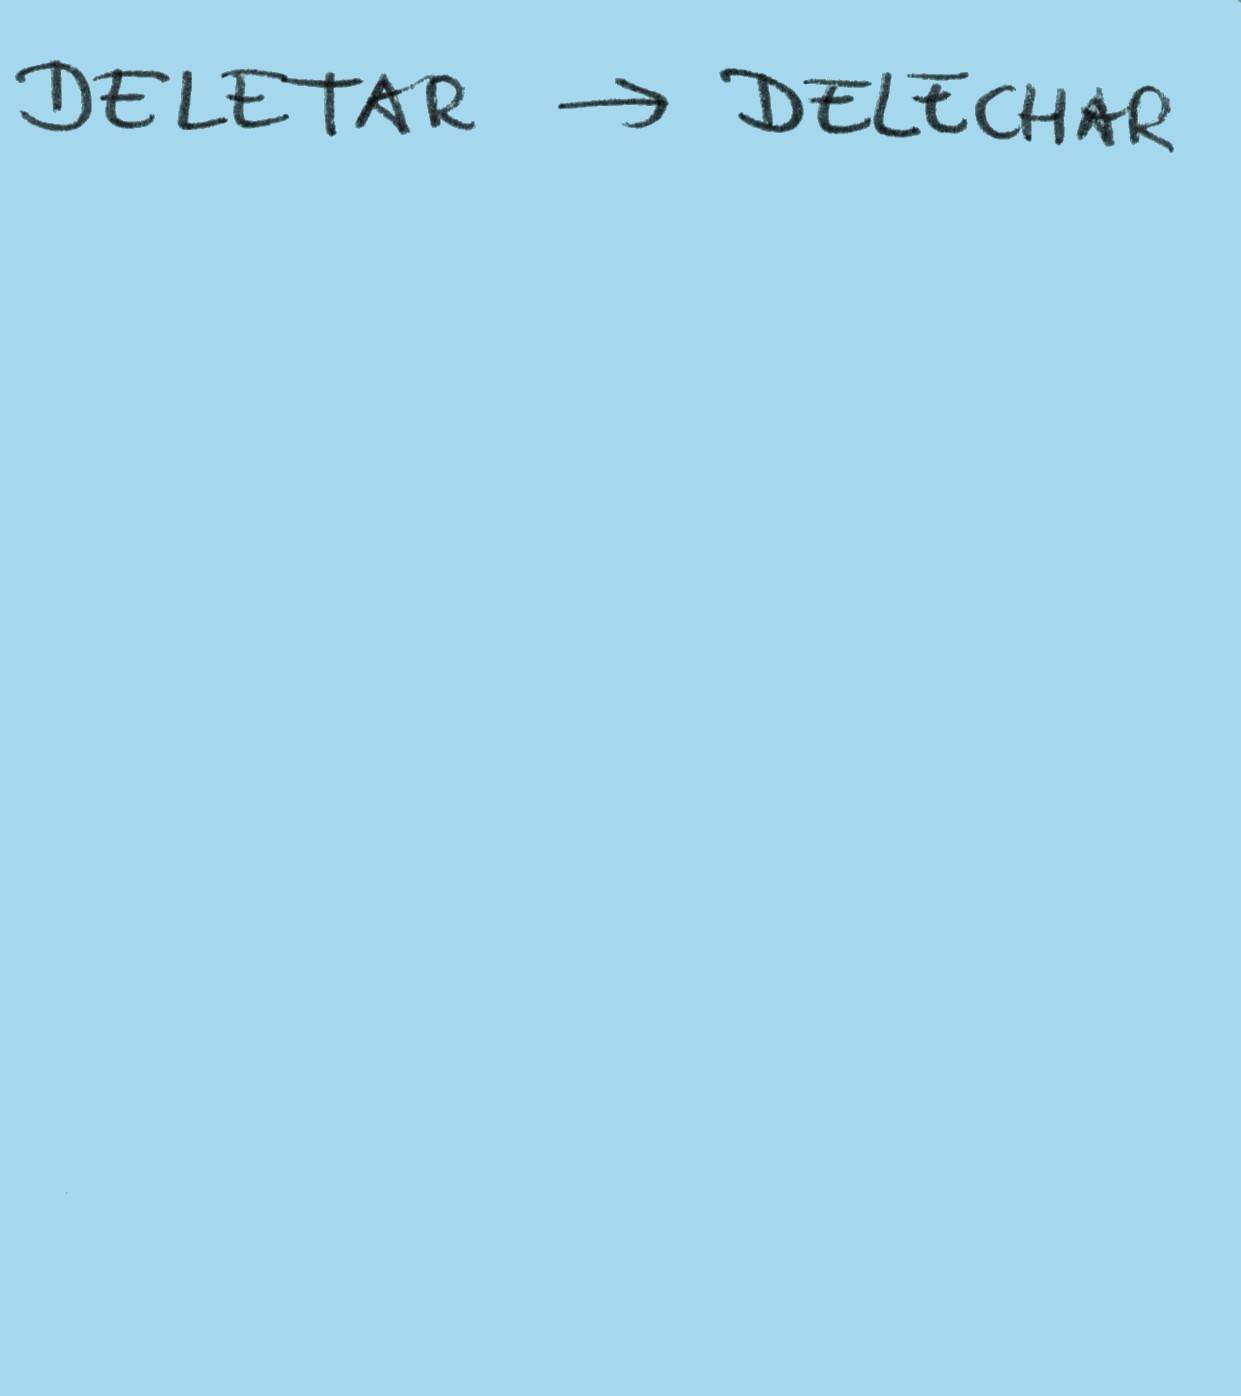 DELETAR → DELECHAR